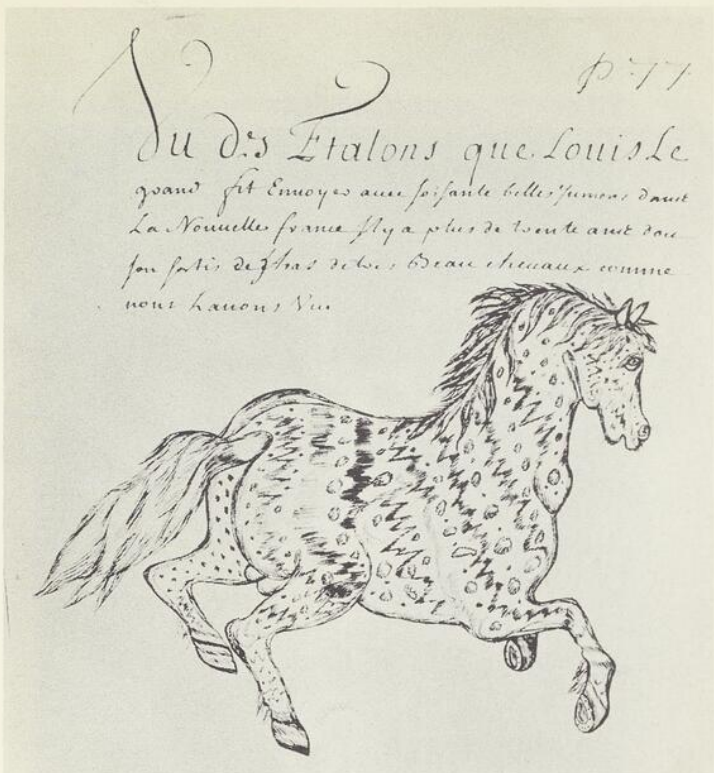 p 77.
Vu des Etalons que Louis Le
grand fit Ennoyer auec soisante belles Jumens dans
La Nouuelle france Il y a plus de trente ans dou
son sortis de tres Beau cheuaux comme
nous Lauons Vu